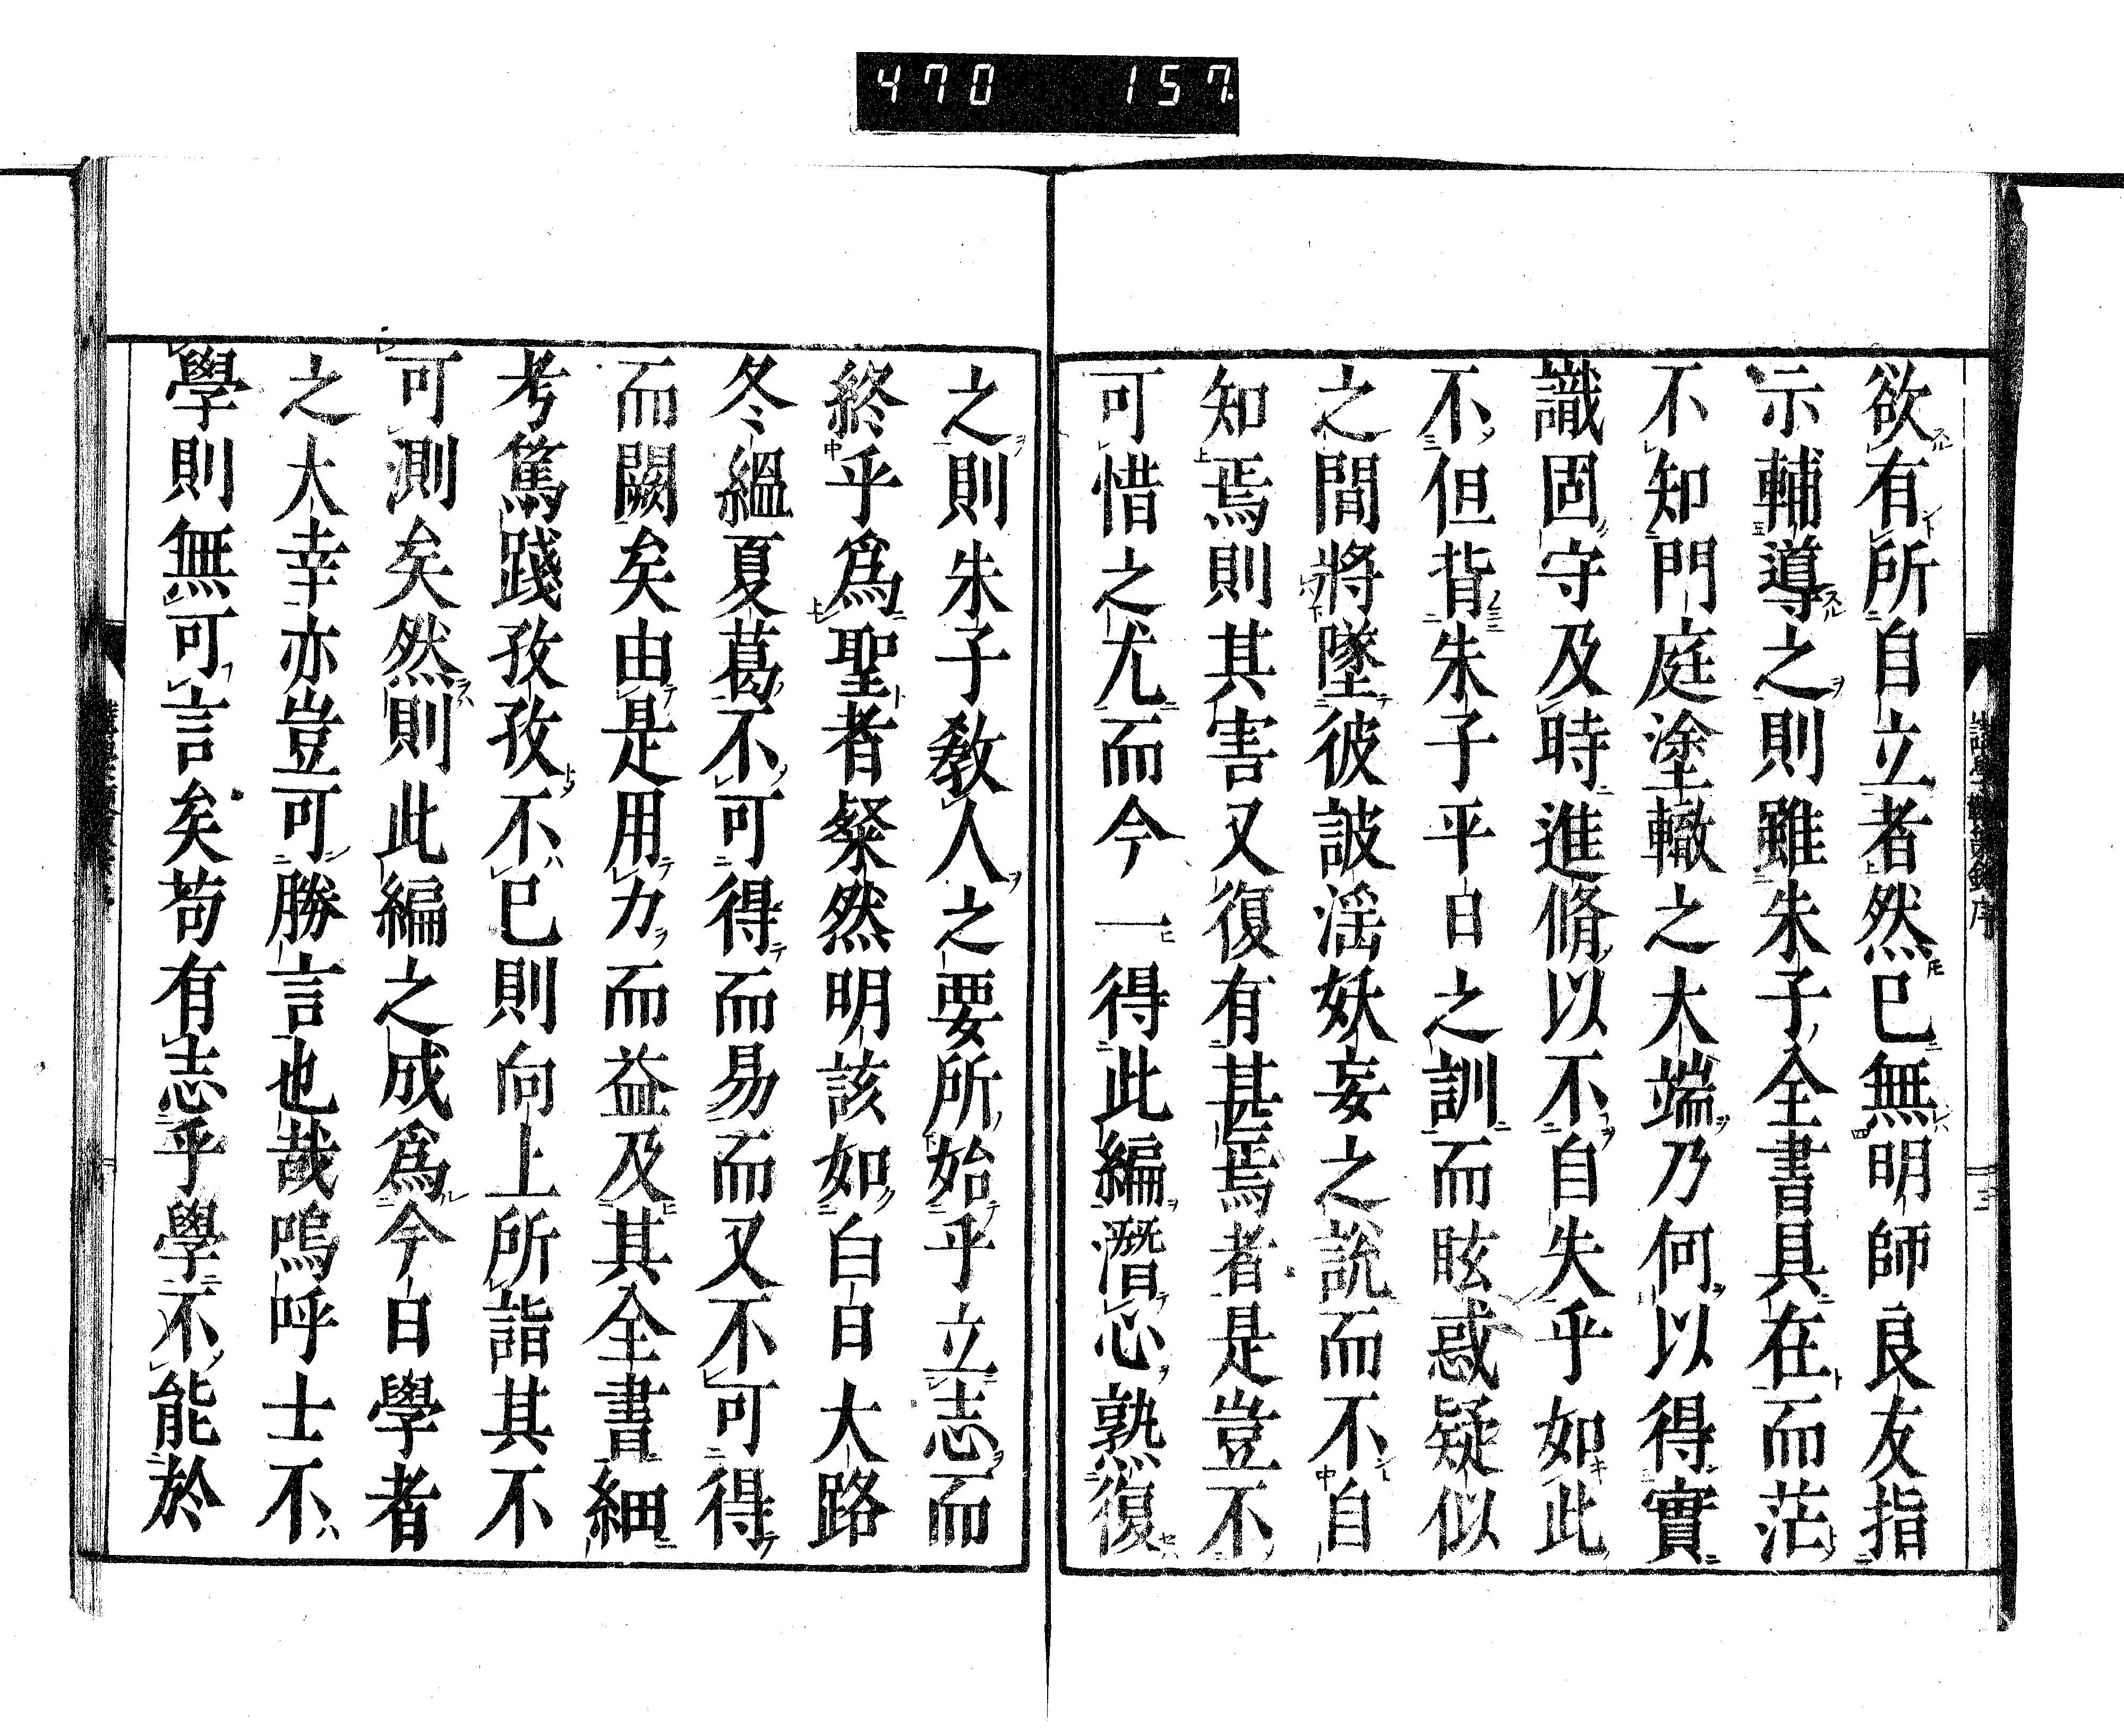 470 157
欲有所自立者然已無明師良友指
示輔導之則雖朱子全書具在而茫
不知門庭塗轍之大端乃何以得實
識固守及時進脩以不自失乎如此
不但背朱子平日之訓而眩惑疑似
之間將墜彼詖淫妖妄之說而不自
知焉則其害又復有甚焉者是豈不
可惜之尤而今一得此編潛心熟復
之則朱子教人之要所始乎立志而
終乎爲聖者粲然明該如白日大路
冬縕夏葛不可得而易而又不可得
而闕矣由是用力而益及其全書細
考篤踐孜孜不已則向上所詣其不
可測矣然則此編之成爲今日學者
之大幸亦豈可勝言也哉嗚呼士不
學則無可言矣苟有志乎學不能於